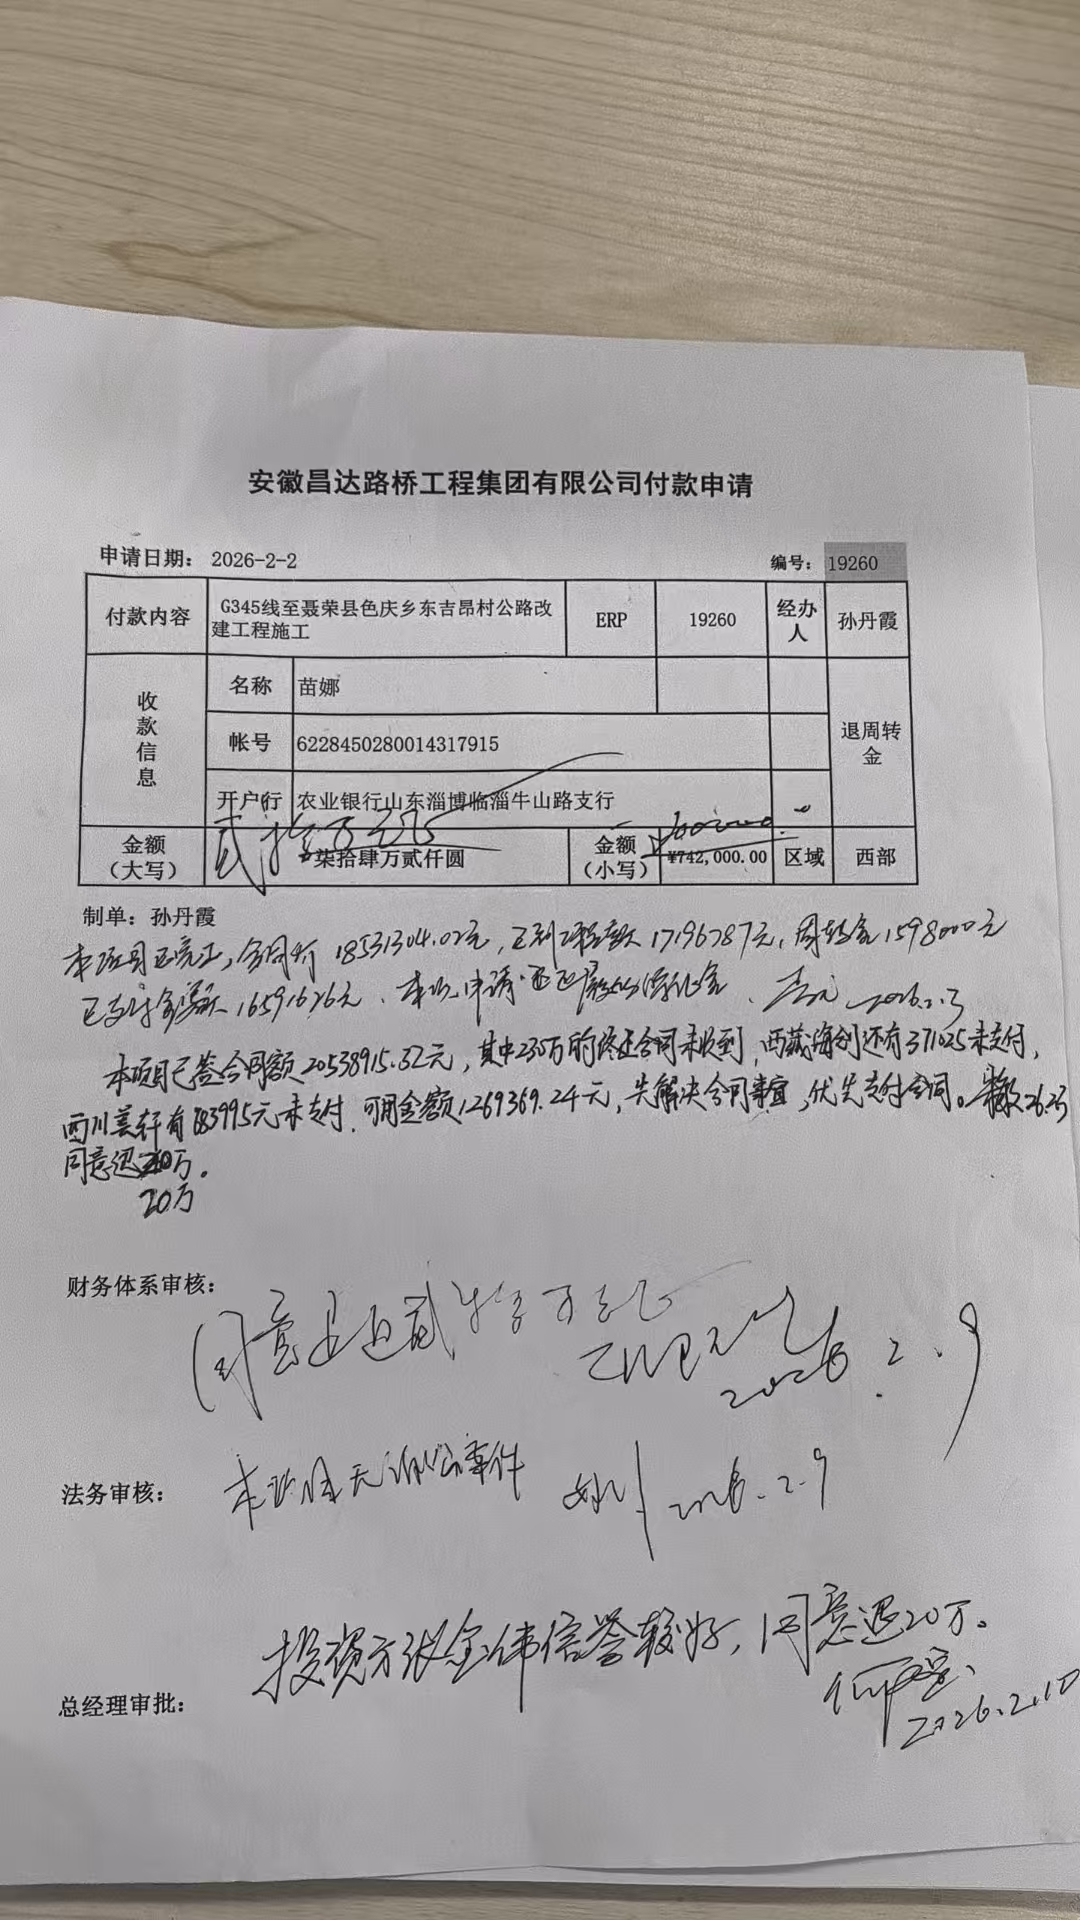 安徽昌达路桥工程集团有限公司付款申请
申请日期： 2026-2-2 编号： 19260
付款内容 G345线至聂荣县色庆乡东吉昂村公路改建工程施工 ERP 19260 经办人 孙丹霞
收款信息 名称 苗娜 退周转金
帐号 6228450280014317915
开户行 农业银行山东淄博临淄牛山路支行
贰拾万元 200000
金额（大写） 柒拾肆万贰仟圆 金额（小写） ¥742,000.00 区域 西部
制单：孙丹霞
本项目已完工，合同价18531304.02元，已到工程款17196787元，周转金1598000元
已支付金额 16591626元、本次申请退 2026.2.3
本项目已签合同额20538915.32元，其中230万的终止合同未收到，西藏海创还有371025未支付，
四川美轩有683995元未支付，可用金额1269369.24元，先解决合同事宜，优先支付合同。
同意退20万。
20万
财务体系审核： 同意退贰拾万元 2026.2.9
法务审核： 本项目无诉讼事件 2026.2.9
投资方张金伟信誉较好，同意退20万。
总经理审批： 2026.2.10